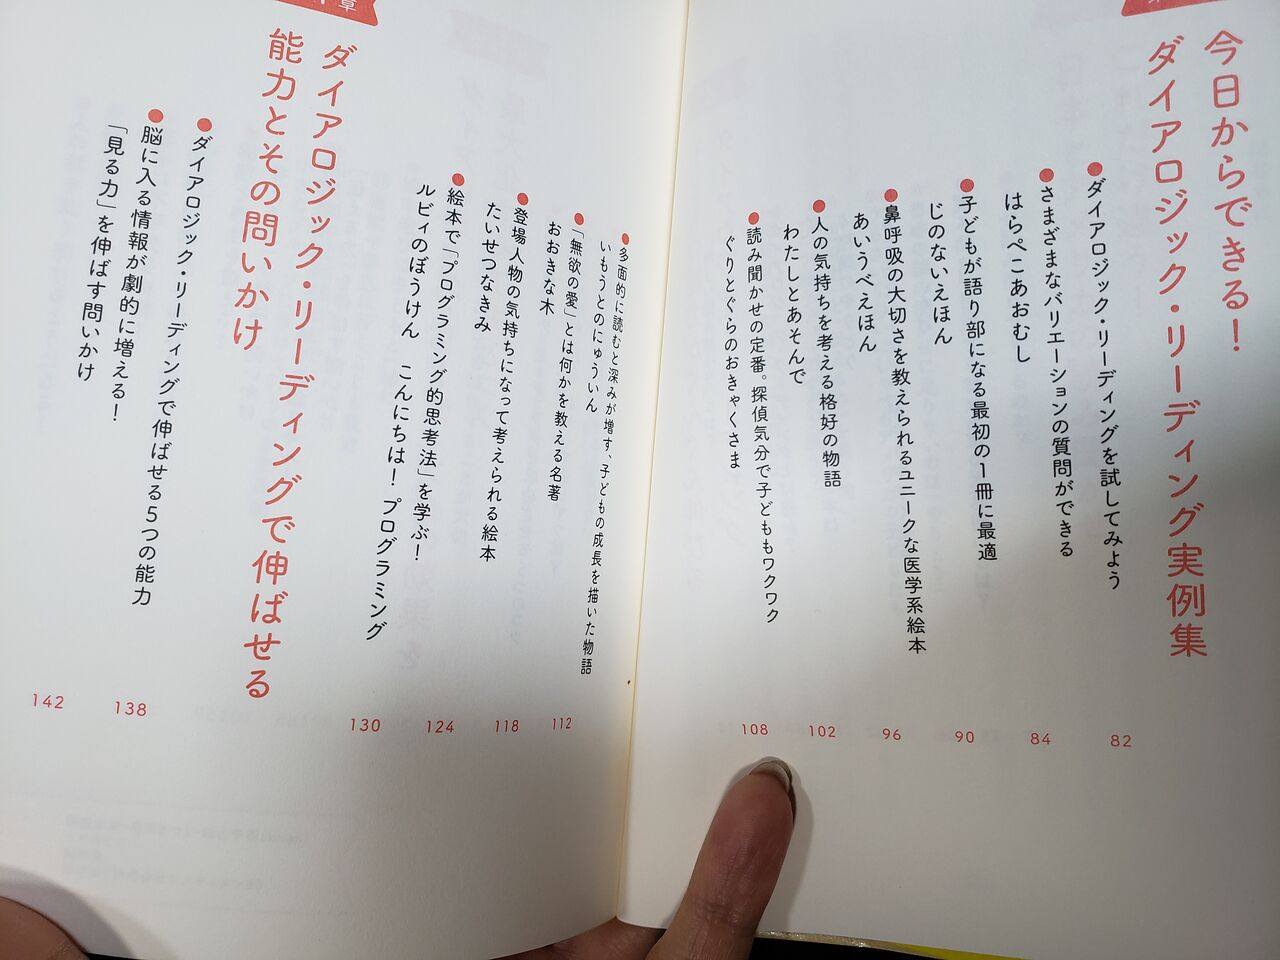 今日からできる！
ダイアロジック・リーディング実例集
●ダイアロジック・リーディングを試してみよう
82
●さまざまなバリエーションの質問ができる
はらぺこあおむし
84
●子どもが語り部になる最初の1冊に最適
じのないえほん
90
●鼻呼吸の大切さを教えられるユニークな医学系絵本
あいうべえほん
96
●人の気持ちを考える格好の物語
わたしとあそんで
102
●読み聞かせの定番。探偵気分で子どももワクワク
ぐりとぐらのおきゃくさま
108
●多面的に読むと深みが増す、子どもの成長を描いた物語
いもうとのにゅういん
112
●「無欲の愛」とは何かを教える名著
おおきな木
118
●登場人物の気持ちになって考えられる絵本
たいせつなきみ
124
●絵本で「プログラミング的思考法」を学ぶ！
ルビィのぼうけん　こんにちは！プログラミング
130
章
ダイアロジック・リーディングで伸ばせる
能力とその問いかけ
●ダイアロジック・リーディングで伸ばせる5つの能力
138
●脳に入る情報が劇的に増える！
「見る力」を伸ばす問いかけ
142